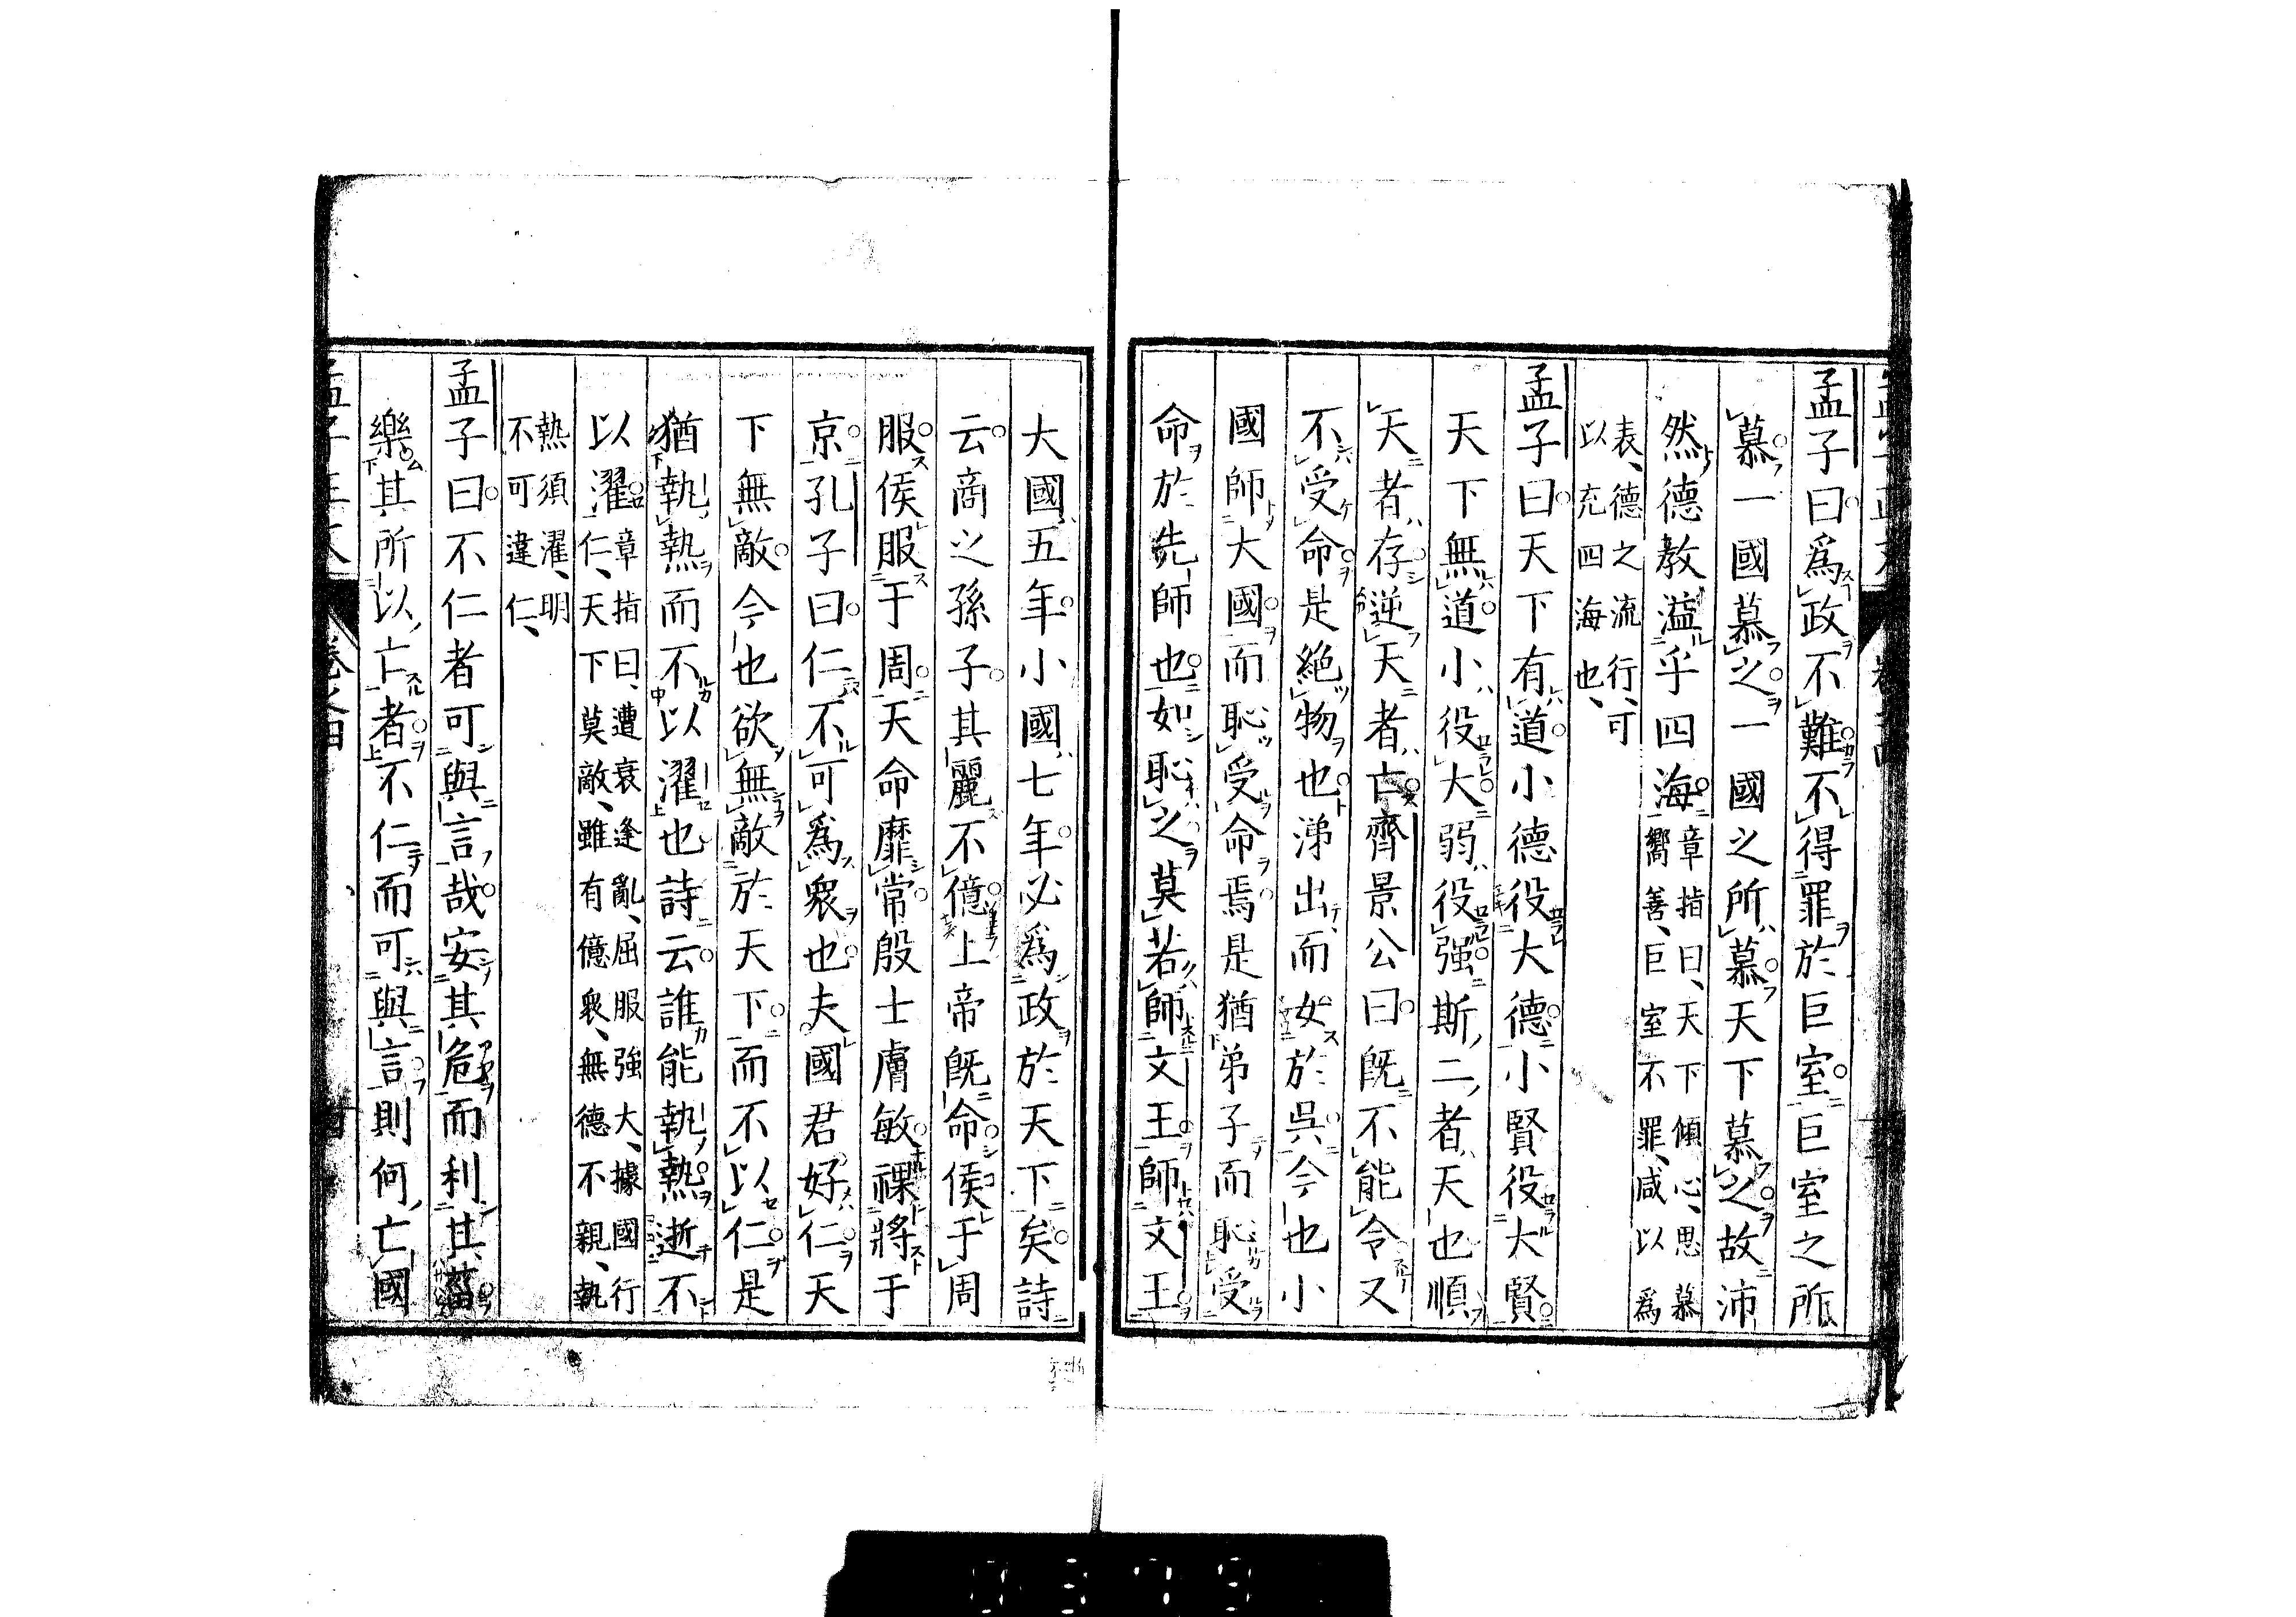 孟子曰爲政不難不得罪於巨室巨室之所
慕一國慕之一國之所慕天下慕之故沛
然德教溢乎四海章指曰、天下傾心、思慕
嚮善、巨室不罪、咸以爲
表、德之流行、可
以充四海也、
孟子曰天下有道小德役大德小賢役大賢
天下無道小役大弱役强斯二者天也順
天者存逆天者亡齊景公曰既不能令又
不受命是絶物也涕出而女於呉今也小
國師大國而恥受命焉是猶弟子而恥受
命於先師也如恥之莫若師文王師文王
大國五年小國七年必爲政於天下矣詩
云商之孫子其麗不億上帝既命侯于周
服侯服于周天命靡常殷士膚敏祼將于
京孔子曰仁不可爲衆也夫國君好仁天
下無敵今也欲無敵於天下而不以仁是
猶執熱而不以濯也詩云誰能執熱逝不
以濯章指曰、遭衰逢亂、屈服強大、據國行
仁、天下莫敵、雖有億衆、無德不親、執
熱須濯、明
不可違仁、
孟子曰不仁者可與言哉安其危而利其菑
樂其所以亡者不仁而可與言則何亡國